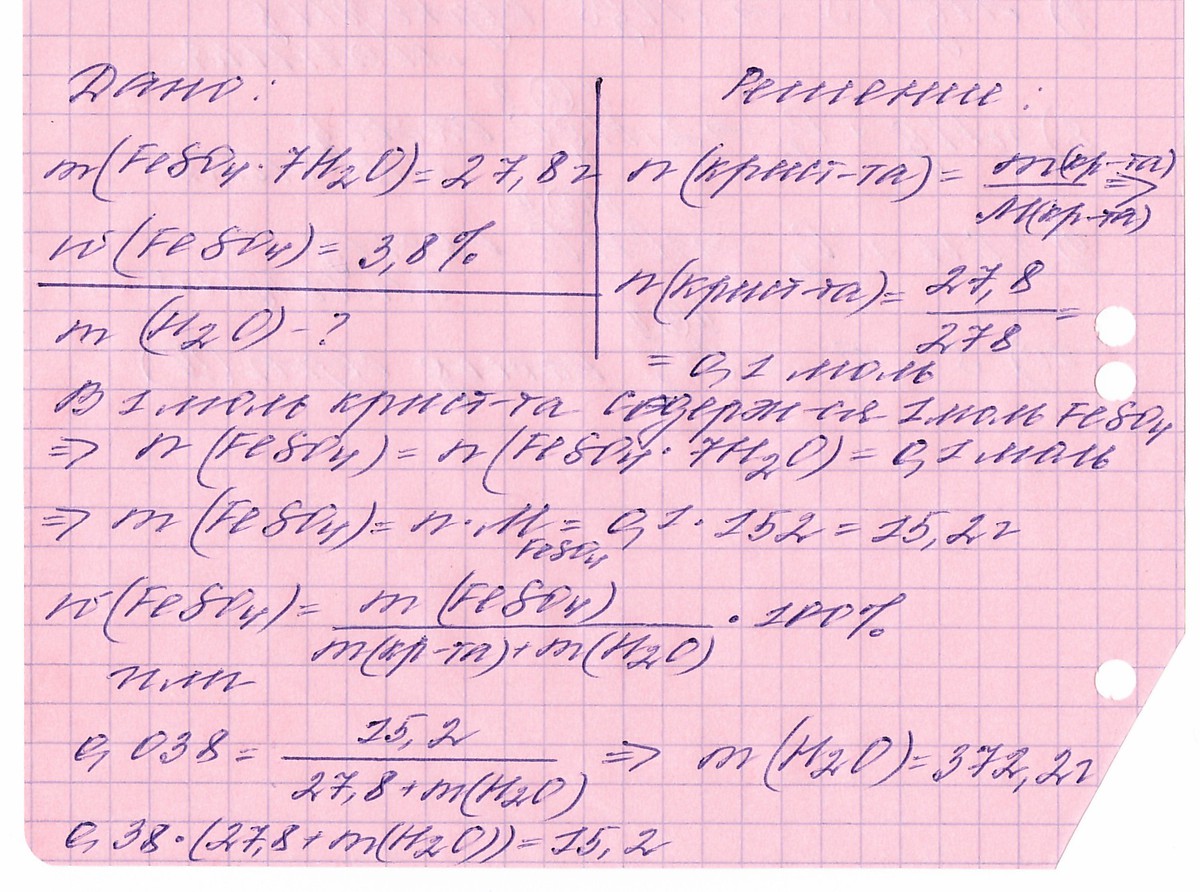 Дано:
m(FeSO₄·7H₂O)=27,8г
w(FeSO₄)=3,8%
m(H₂O)-?
Решение:
n(крист-та)= m(кр-та)/M(кр-та) =>
n(крист-та)= 27,8/278 =
= 0,1 моль
В 1 моль крист-та содерж-ся 1 моль FeSO₄
=> n(FeSO₄)= n(FeSO₄·7H₂O)=0,1 моль
=> m(FeSO₄)= n·M FeSO₄ = 0,1·152=15,2г
w(FeSO₄)= m(FeSO₄)/m(кр-та)+m(H₂O) · 100%
или
0,038= 15,2/27,8+m(H₂O) => m(H₂O)=372,2г
0,38·(27,8+m(H₂O))=15,2